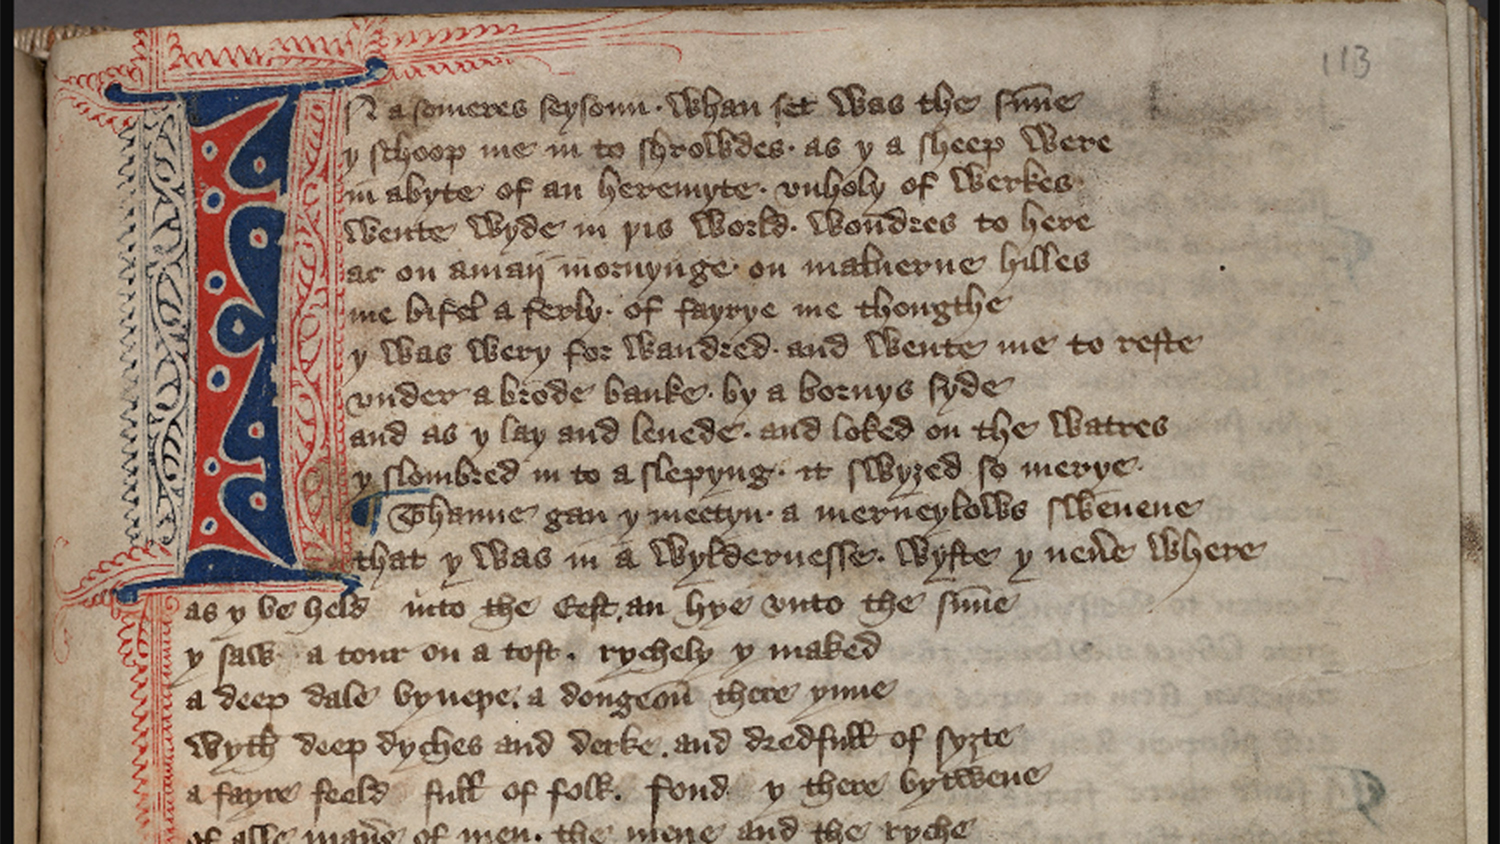 113
IN a someres seysoun · whan set was the su̅ne
y schoop me in to shrowdes · as y a sheep were
in abyte of an heremyte · vnholy of werkes
wente wyde in þis world · wondres to here
ac on a maij mornynge · on maluerne hilles
me bifel a ferly · of fayrye me thougthe
y was wery for wandred · and wente me to reste
vnder a brode banke · by a bornys syde
and as y lay and lenede · and loked on the watres
y slombred in to a slepyng · it swyȝed so merye
Thanne gan y meetyn · a merueylows sweuene
that y was in a wyldernesse · wyste y neu̅e where
as y be held into the Eest, an hye vnto the su̅ne
y saw a tour on a toft. rychely y maked
a deep dale byneþe. a dongeou̅ there ynne
wyth deep dyches and derke. and dredfull of syȝte
a fayre feeld full of folk. fond y there bytwene
of alle mane̅ of men. the mene and the ryche